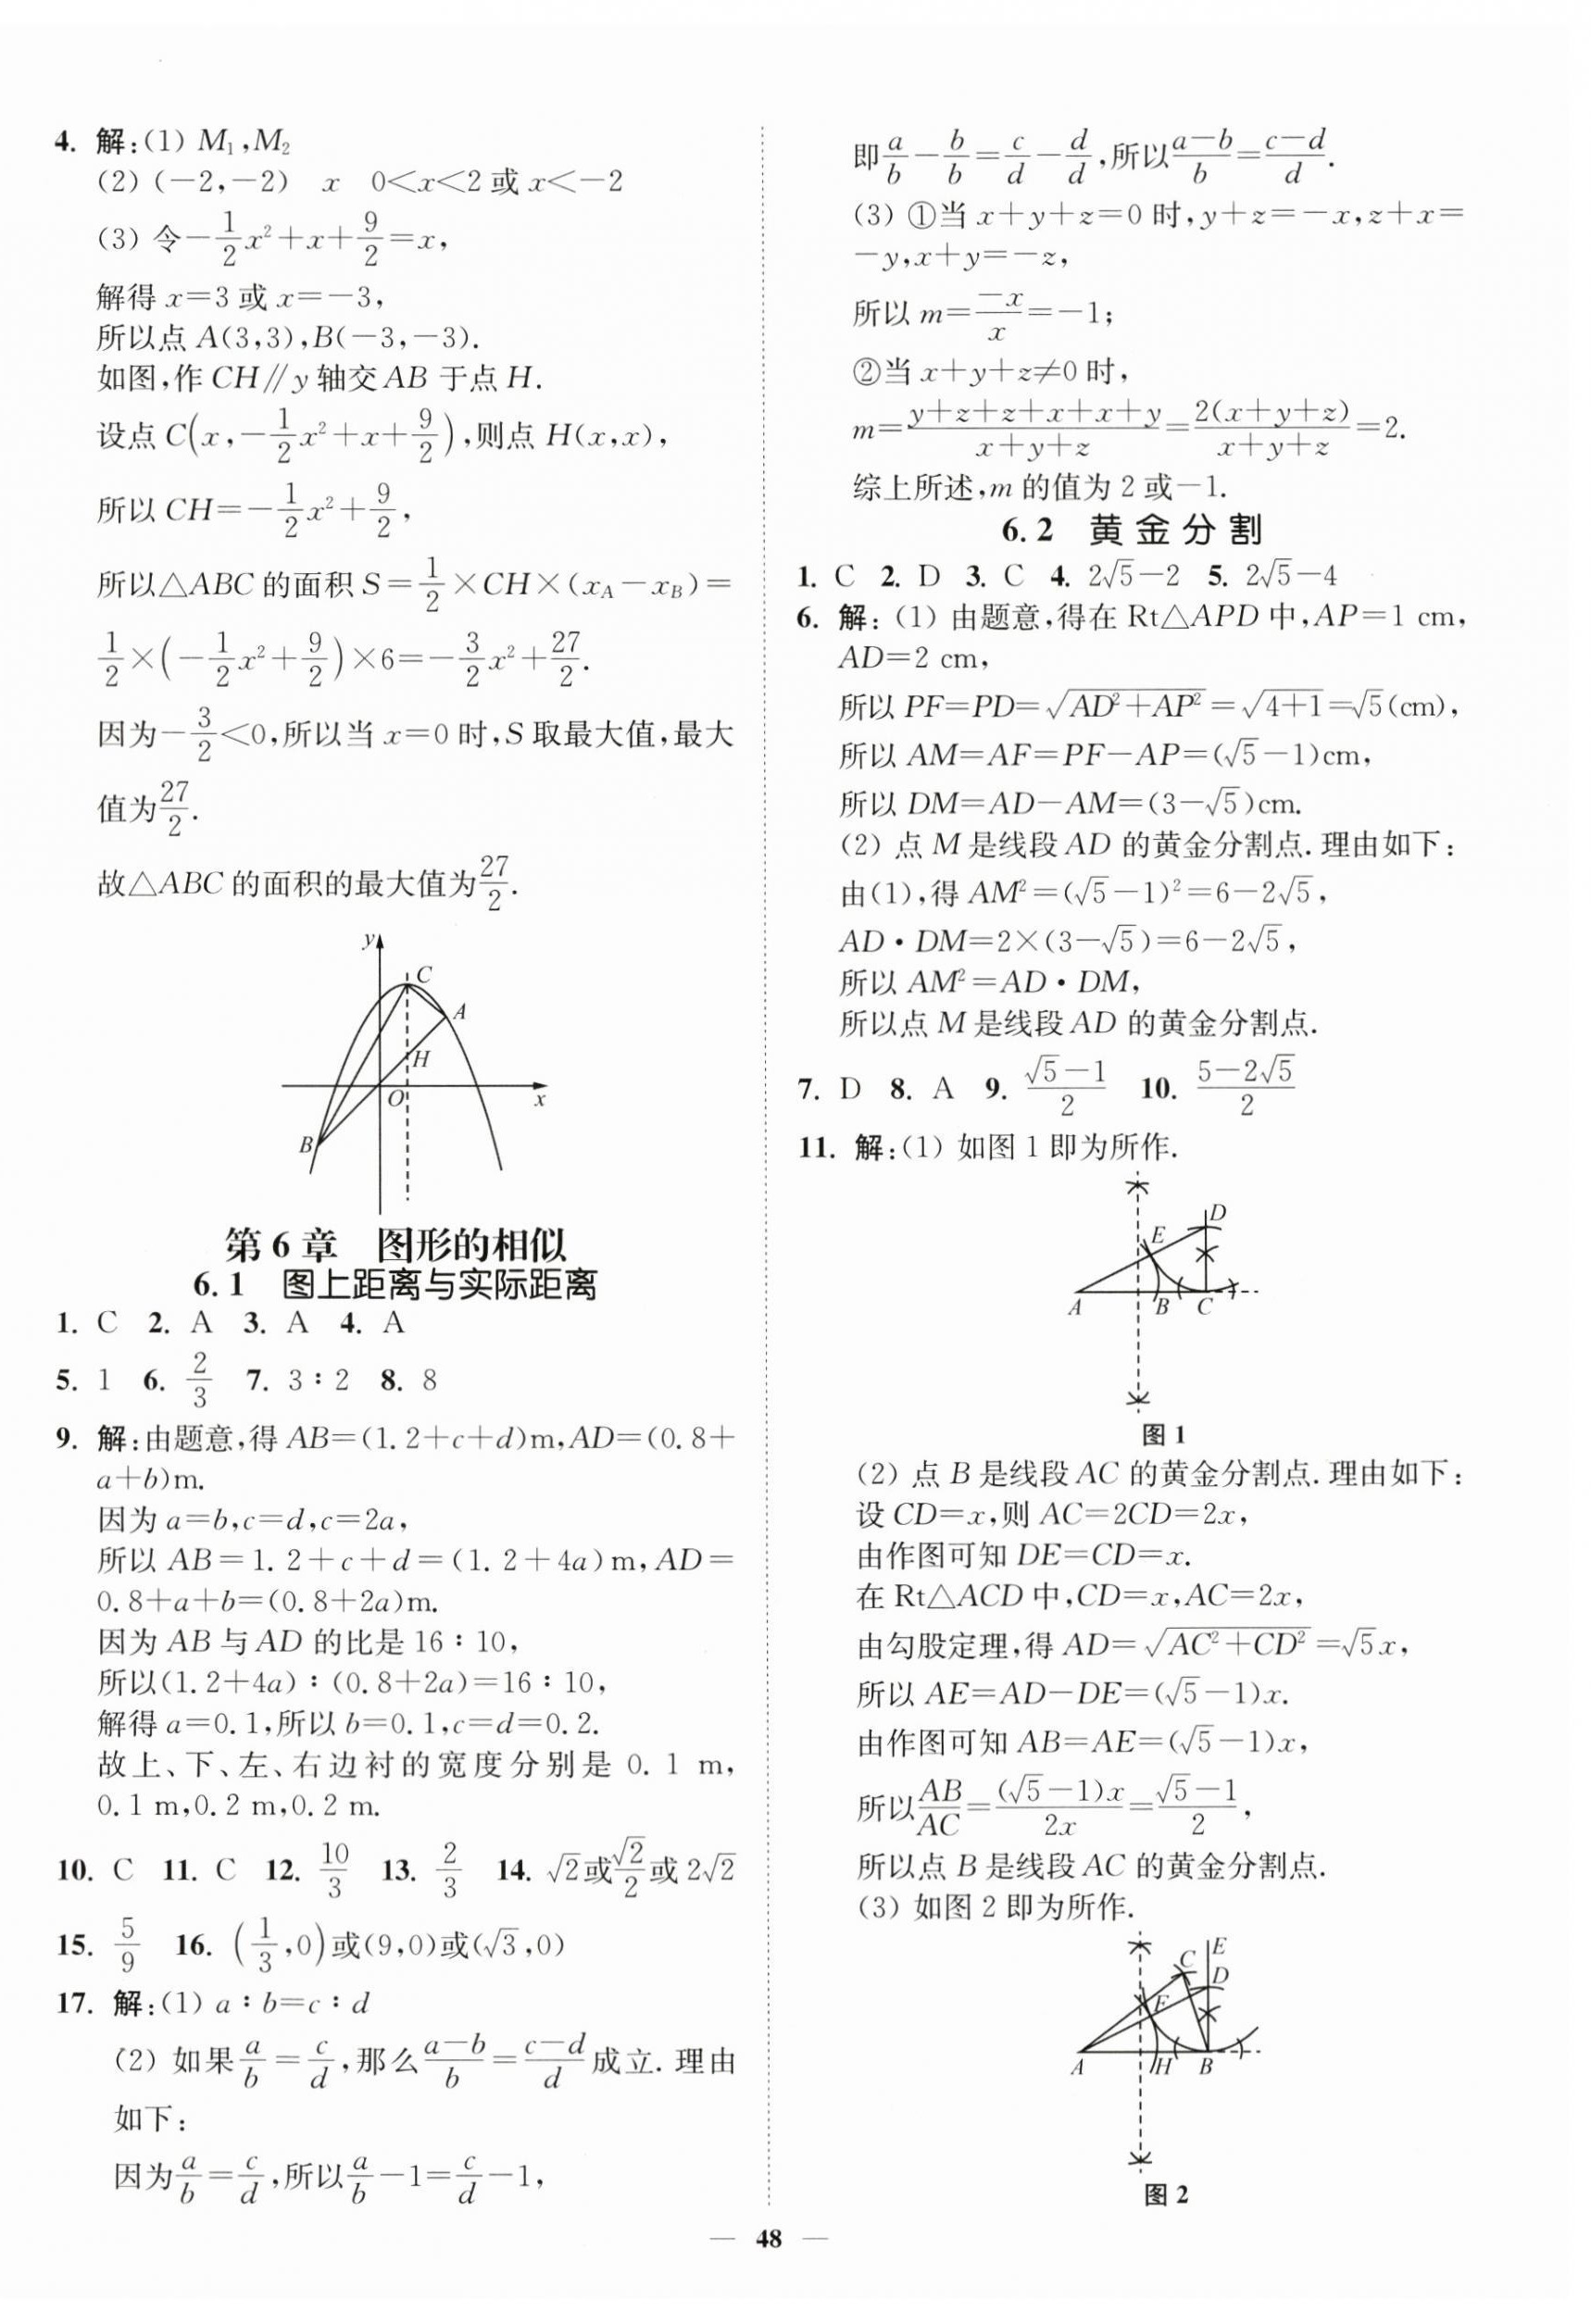 4. 解:(1) M₁,M₂
(2) (−2,−2)　x　0<x<2 或 x<−2
(3) 令−1/2x²+x+9/2=x,
解得 x=3 或 x=−3,
所以点 A(3,3),B(−3,−3).
如图,作 CH∥y 轴交 AB 于点 H.
设点 C(x,−1/2x²+x+9/2),则点 H(x,x),
所以 CH=−1/2x²+9/2,
所以△ABC 的面积 S=1/2×CH×(x_A−x_B)=
1/2×(−1/2x²+9/2)×6=−3/2x²+27/2.
因为−3/2<0,所以当 x=0 时,S 取最大值,最大
值为27/2.
故△ABC 的面积的最大值为27/2.
y
C
A
H
O
x
B
第 6 章　图形的相似
6.1　图上距离与实际距离
1. C　2. A　3. A　4. A
5. 1　6. 2/3　7. 3∶2　8. 8
9. 解:由题意,得 AB=(1.2+c+d)m,AD=(0.8+
a+b)m.
因为 a=b,c=d,c=2a,
所以 AB=1.2+c+d=(1.2+4a)m,AD=
0.8+a+b=(0.8+2a)m.
因为 AB 与 AD 的比是 16∶10,
所以(1.2+4a)∶(0.8+2a)=16∶10,
解得 a=0.1,所以 b=0.1,c=d=0.2.
故上、下、左、右边衬的宽度分别是 0.1 m,
0.1 m,0.2 m,0.2 m.
10. C　11. C　12. 10/3　13. 2/3　14. √2或√2/2或 2√2
15. 5/9　16. (1/3,0)或(9,0)或(√3,0)
17. 解:(1) a∶b=c∶d
(2) 如果a/b=c/d,那么(a−b)/b=(c−d)/d成立.理由
如下:
因为a/b=c/d,所以a/b−1=c/d−1,
即a/b−b/b=c/d−d/d,所以(a−b)/b=(c−d)/d.
(3) ①当 x+y+z=0 时,y+z=−x,z+x=
−y,x+y=−z,
所以 m=−x/x=−1;
②当 x+y+z≠0 时,
m=(y+z+z+x+x+y)/(x+y+z)=2(x+y+z)/(x+y+z)=2.
综上所述,m 的值为 2 或−1.
6.2　黄金分割
1. C　2. D　3. C　4. 2√5−2　5. 2√5−4
6. 解:(1) 由题意,得在 Rt△APD 中,AP=1 cm,
AD=2 cm,
所以 PF=PD=√(AD²+AP²)=√(4+1)=√5(cm),
所以 AM=AF=PF−AP=(√5−1)cm,
所以 DM=AD−AM=(3−√5)cm.
(2) 点 M 是线段 AD 的黄金分割点.理由如下:
由(1),得 AM²=(√5−1)²=6−2√5,
AD·DM=2×(3−√5)=6−2√5,
所以 AM²=AD·DM,
所以点 M 是线段 AD 的黄金分割点.
7. D　8. A　9. (√5−1)/2　10. (5−2√5)/2
11. 解:(1) 如图 1 即为所作.
D
E
A
B
C
图 1
(2) 点 B 是线段 AC 的黄金分割点.理由如下:
设 CD=x,则 AC=2CD=2x,
由作图可知 DE=CD=x.
在 Rt△ACD 中,CD=x,AC=2x,
由勾股定理,得 AD=√(AC²+CD²)=√5x,
所以 AE=AD−DE=(√5−1)x.
由作图可知 AB=AE=(√5−1)x,
所以AB/AC=(√5−1)x/2x=(√5−1)/2,
所以点 B 是线段 AC 的黄金分割点.
(3) 如图 2 即为所作.
E
C
D
F
A
H
B
图 2
— 48 —